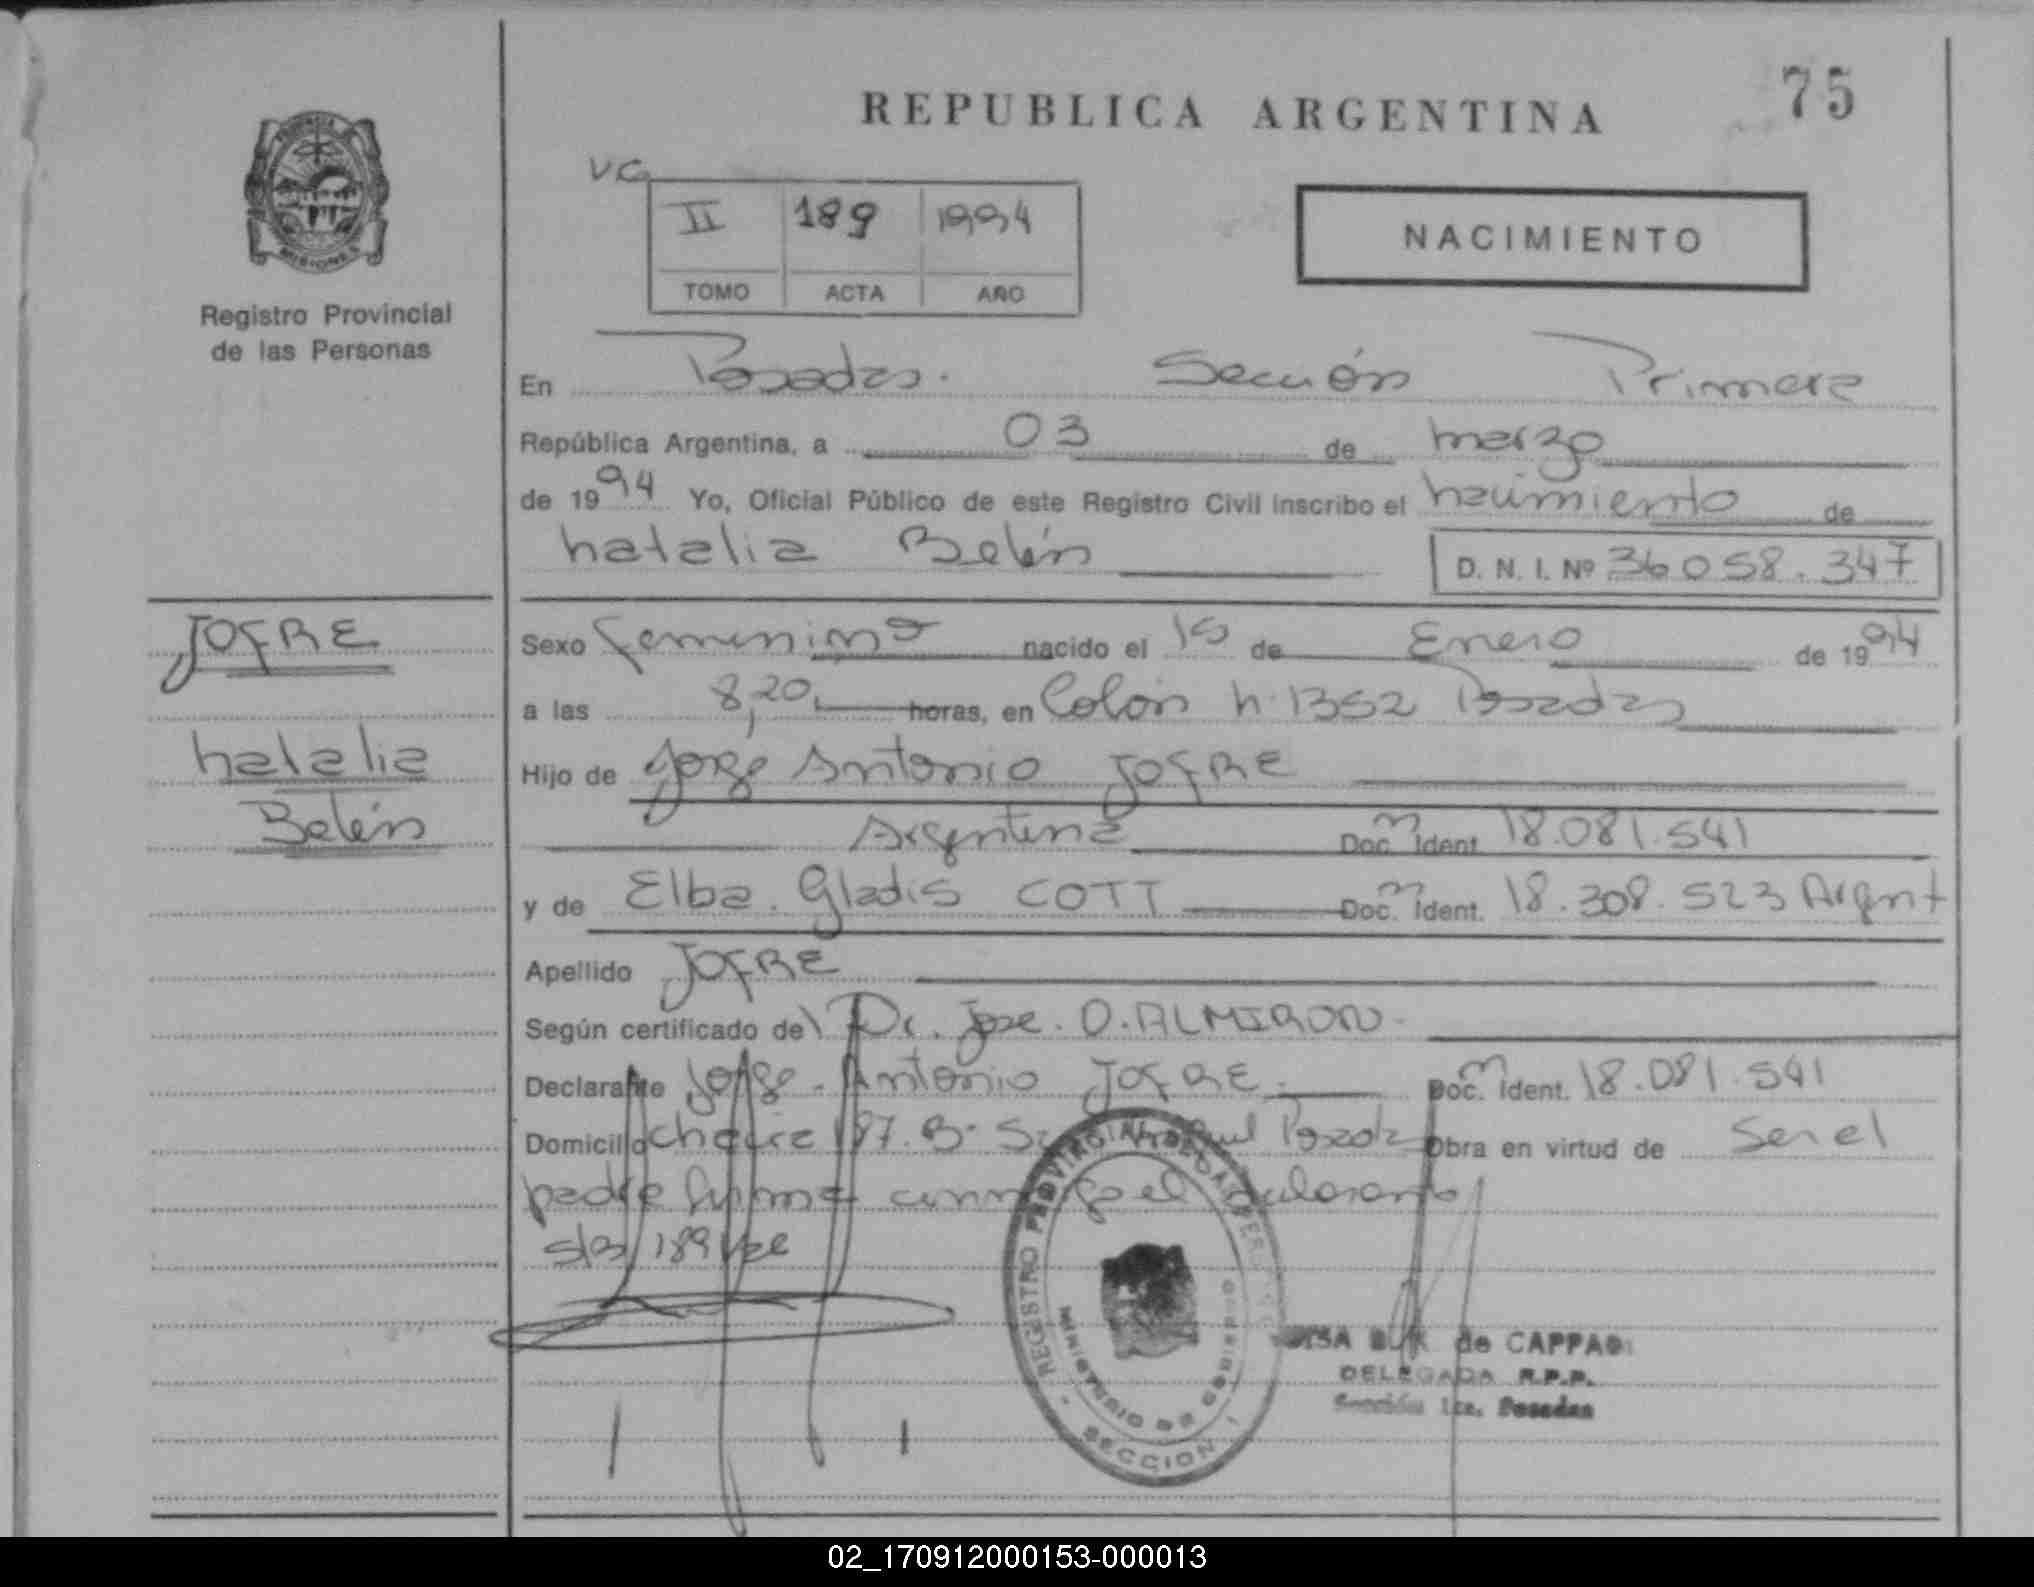 75
REPUBLICA ARGENTINA
PROVINCIA DE
MISIONES
Registro Provincial
de las Personas
VG
II 189 1994
TOMO ACTA AÑO
NACIMIENTO
En Posadas. Sección Primera
República Argentina, a 03 de marzo
de 1994 Yo, Oficial Público de este Registro Civil inscribo el nacimiento de
Natalia Belén
D. N. I. Nº 36058.347
JOFRE
Natalia
Belén
Sexo femenino nacido el 15 de Enero de 1994
a las 8,20 horas, en Colón N. 1352 Posadas
Hijo de Jorge Antonio JOFRE
Argentina Doc. Ident. 18.081.541
y de Elba. Gladis COTT Doc. Ident. 18.308.523 Argent
Apellido JOFRE
Según certificado del Dr. Jose. O. ALMIRON
Declarante Jorge. Antonio JOFRE. Doc. Ident. 18.081.541
Domicilio Chacra 187. Bº Posadas Obra en virtud de Ser el
padre firma el declarante
S/B 189 vale
REGISTRO PROVINCIAL DE LAS PERSONAS
MINISTERIO DE GOBIERNO
SECCION 1
de CAPPA
DELEGADA R.P.P.
Sección 1ra. Posadas
02_170912000153-000013